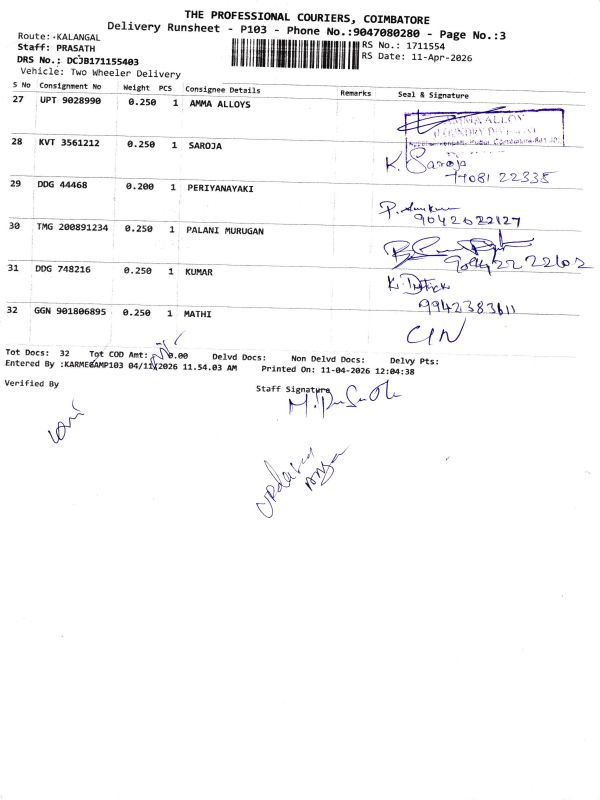 THE PROFESSIONAL COURIERS, COIMBATORE
Delivery Runsheet - P103 - Phone No.:9047080280 - Page No.:3
Route: KALANGAL
RS No.: 1711554
Staff: PRASATH
RS Date: 11-Apr-2026
DRS No.: DCJB171155403
Vehicle: Two Wheeler Delivery
S No Consignment No Weight PCS Consignee Details Remarks Seal & Signature
27 UPT 9028990 0.250 1 AMMA ALLOYS
AMMA ALLOY
28 KVT 3561212 0.250 1 SAROJA
K. Saroja
77081 22335
29 DDG 44468 0.200 1 PERIYANAYAKI
9042622127
30 TMG 200891234 0.250 1 PALANI MURUGAN
31 DDG 748216 0.250 1 KUMAR
9942383611
32 GGN 901806895 0.250 1 MATHI
Tot Docs: 32 Tot COD Amt: 0.00 Delvd Docs: Non Delvd Docs: Delvy Pts:
Entered By :KARMEGAMP103 04/11/2026 11.54.03 AM Printed On: 11-04-2026 12:04:38
Verified By Staff Signature
updated